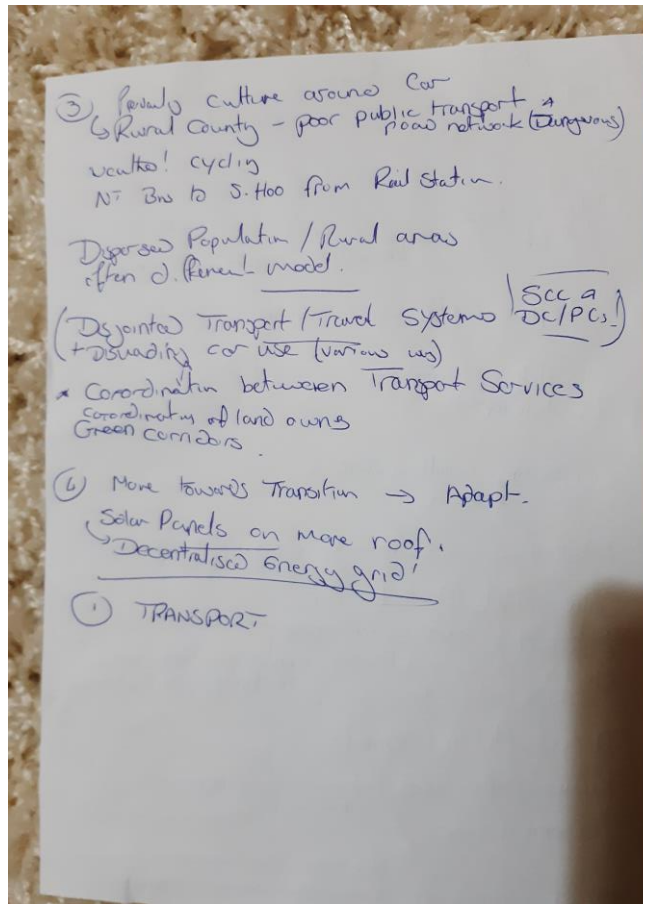 ③ culture around Car
↳ Rural County - poor public transport &
road network (Dangerous)
cycling
to S. Hoo from Rail Station.
Dispersed Population / Rural areas
often different model.
(Disjointed Transport / Travel Systems
SCC a
DC/PCs!)
+ Disuading car use (various ws)
* Co-ordination between Transport Services
of land owns
Green corridors.
Move towards Transition → Adapt.
↳ Solar Panels on more roof.
↳ Decentralised Energy grid!
① TRANSPORT